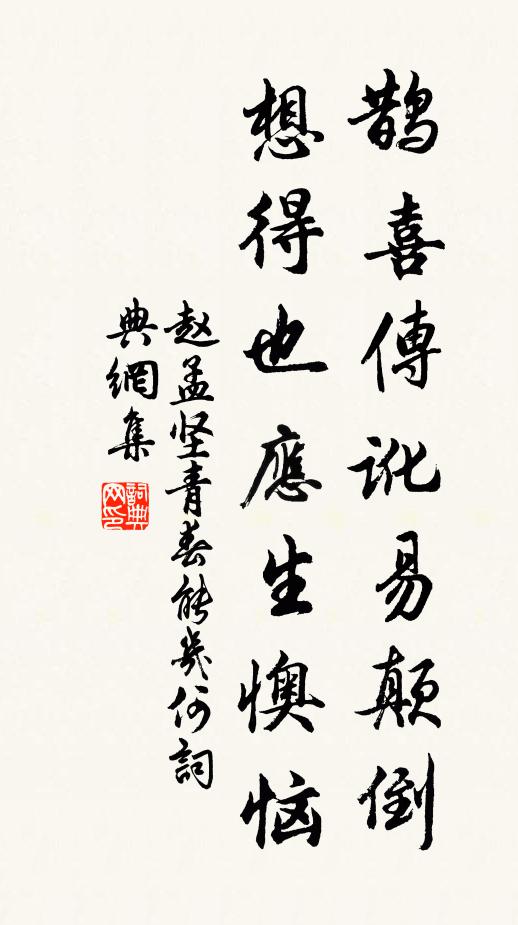 鹊喜傳訛易颠倒
想得也應生懊恼
赵孟坚青春能幾何詞
典網集
詞典网印